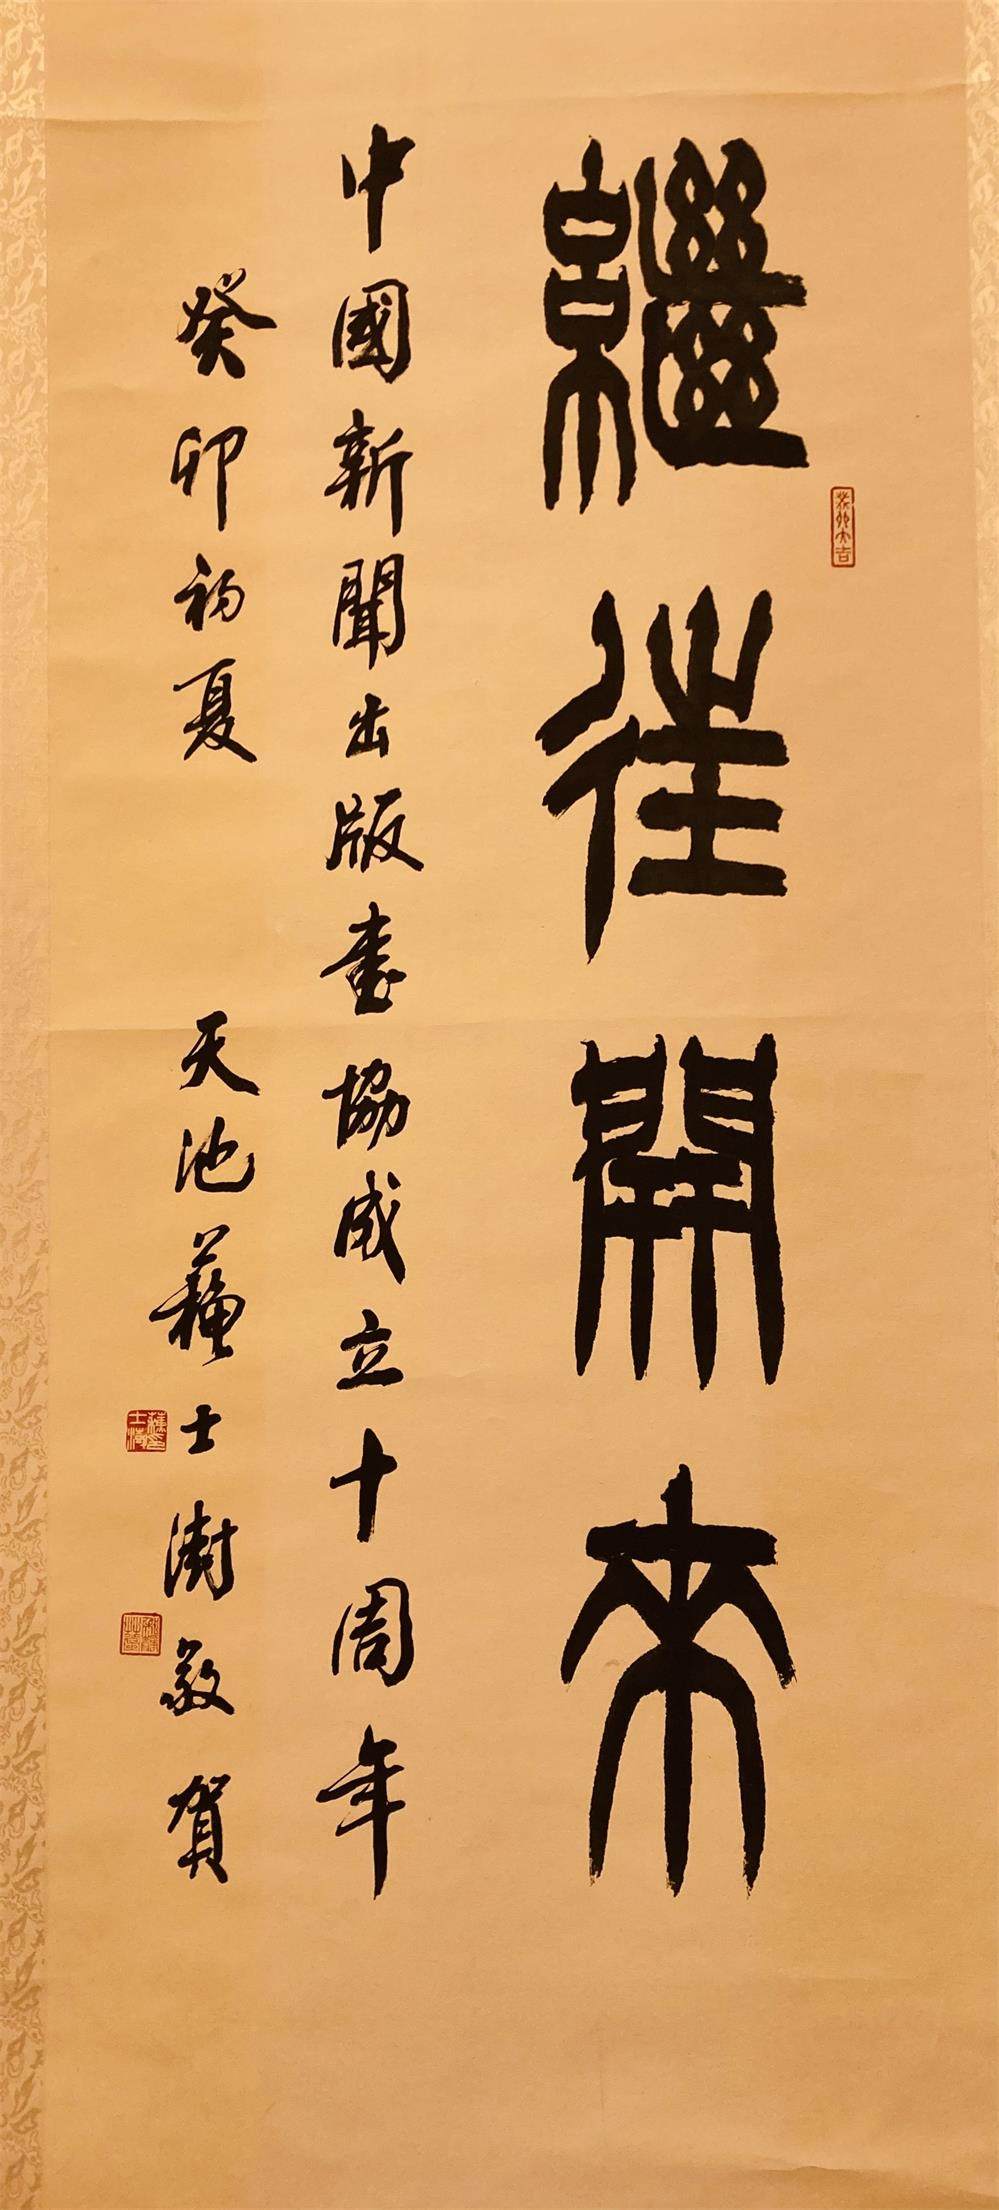 繼往開來
中國新聞出版書協成立十周年
癸卯初夏 天池蘇士澍敬賀
癸卯大吉